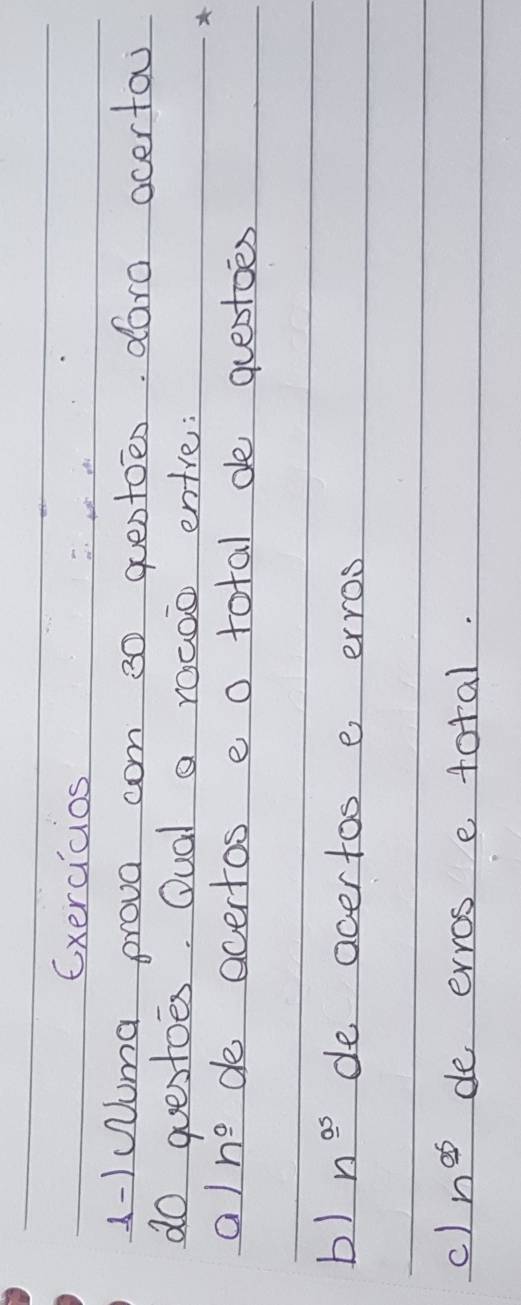 Exercícios
1-) Numa prova com 30 questões. dara acertou
20 questões. Qual a ração entre:
a) nº de acertos e o total de questões
b) nºs de acertos e erros
c) nºs de erros e total.